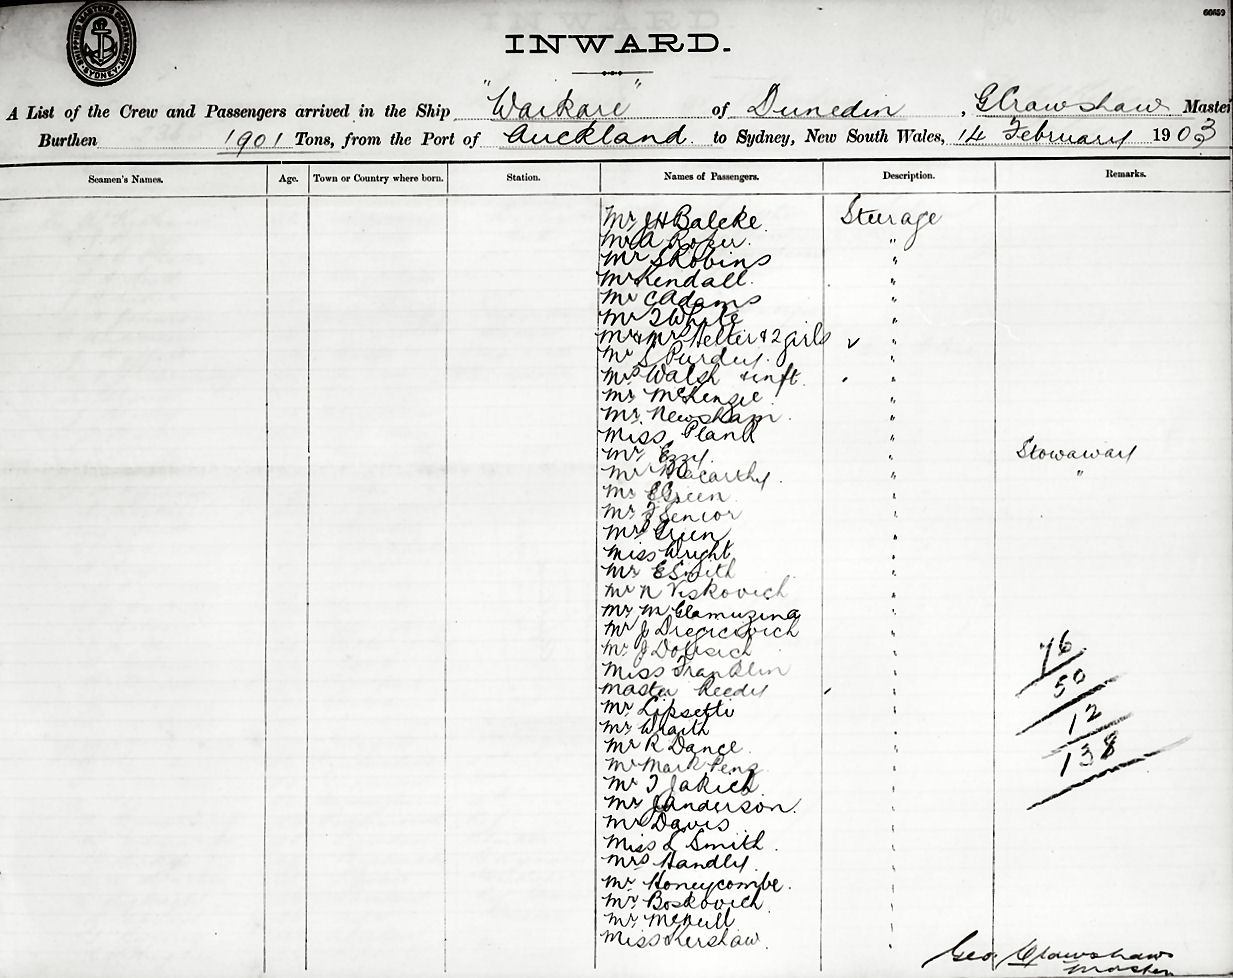 60659
SHIPPING MASTERS DEPARTMENT SYDNEY
INWARD.
A List of the Crew and Passengers arrived in the Ship "Waikare" of Dunedin, G Crawshaw Master
Burthen 1901 Tons, from the Port of Auckland to Sydney, New South Wales, 14 February 1903
Seamen's Names. Age. Town or Country where born. Station. Names of Passengers. Description. Remarks.
Mr JH Balcke Steerage
Mr A Roper "
Mr S Robins "
Mr Kendall "
Mr C Adams "
Mr T White "
Mr & Mrs Helter & 2 girls "
Mr S Purdey "
Mrs Walsh & inft. "
Mr McKenzie "
Mr Newsham "
Miss Plank "
Mr Ezzy. " Stowaway
Mr McCarthy. " "
Mr E Green "
Mr F Senior "
Mrs Green "
Miss Wright "
Mr E Smith "
Mr N Viskovich "
Mr M Glamuzina "
Mr J "
Mr J "
Miss Franklin " 76
Master Reedy " 50
Mr Lipsetti " 12
Mr Wraith " 138
Mr R Dance "
Mr Mark Peng "
Mr T Jakich "
Mr J Anderson. "
Mr Davis "
Miss L Smith "
Mrs Handly "
Mr Honeycombe. "
Mr Boskovich "
Mr McNeill "
Miss Kershaw "
Geo Crawshaw
Master